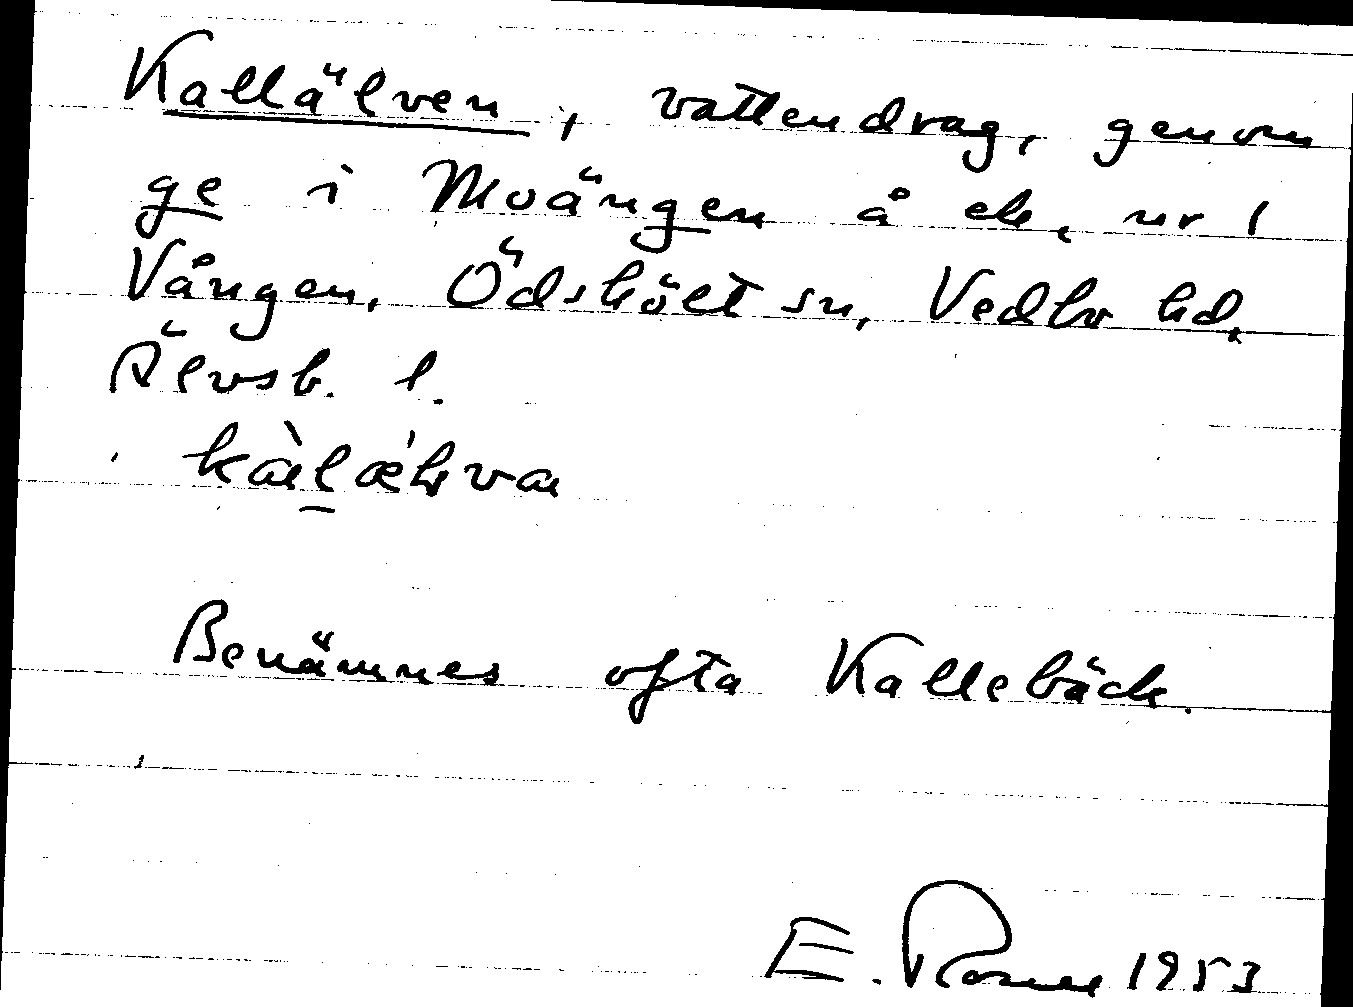 Kallälven, vattendrag, genom
ge i Moängen å ek, nr 1
Vången, Ödskölt sn, Vedbo hd,
Älvsb. l.
Benämnes ofta Kallebäck.
E. 1953